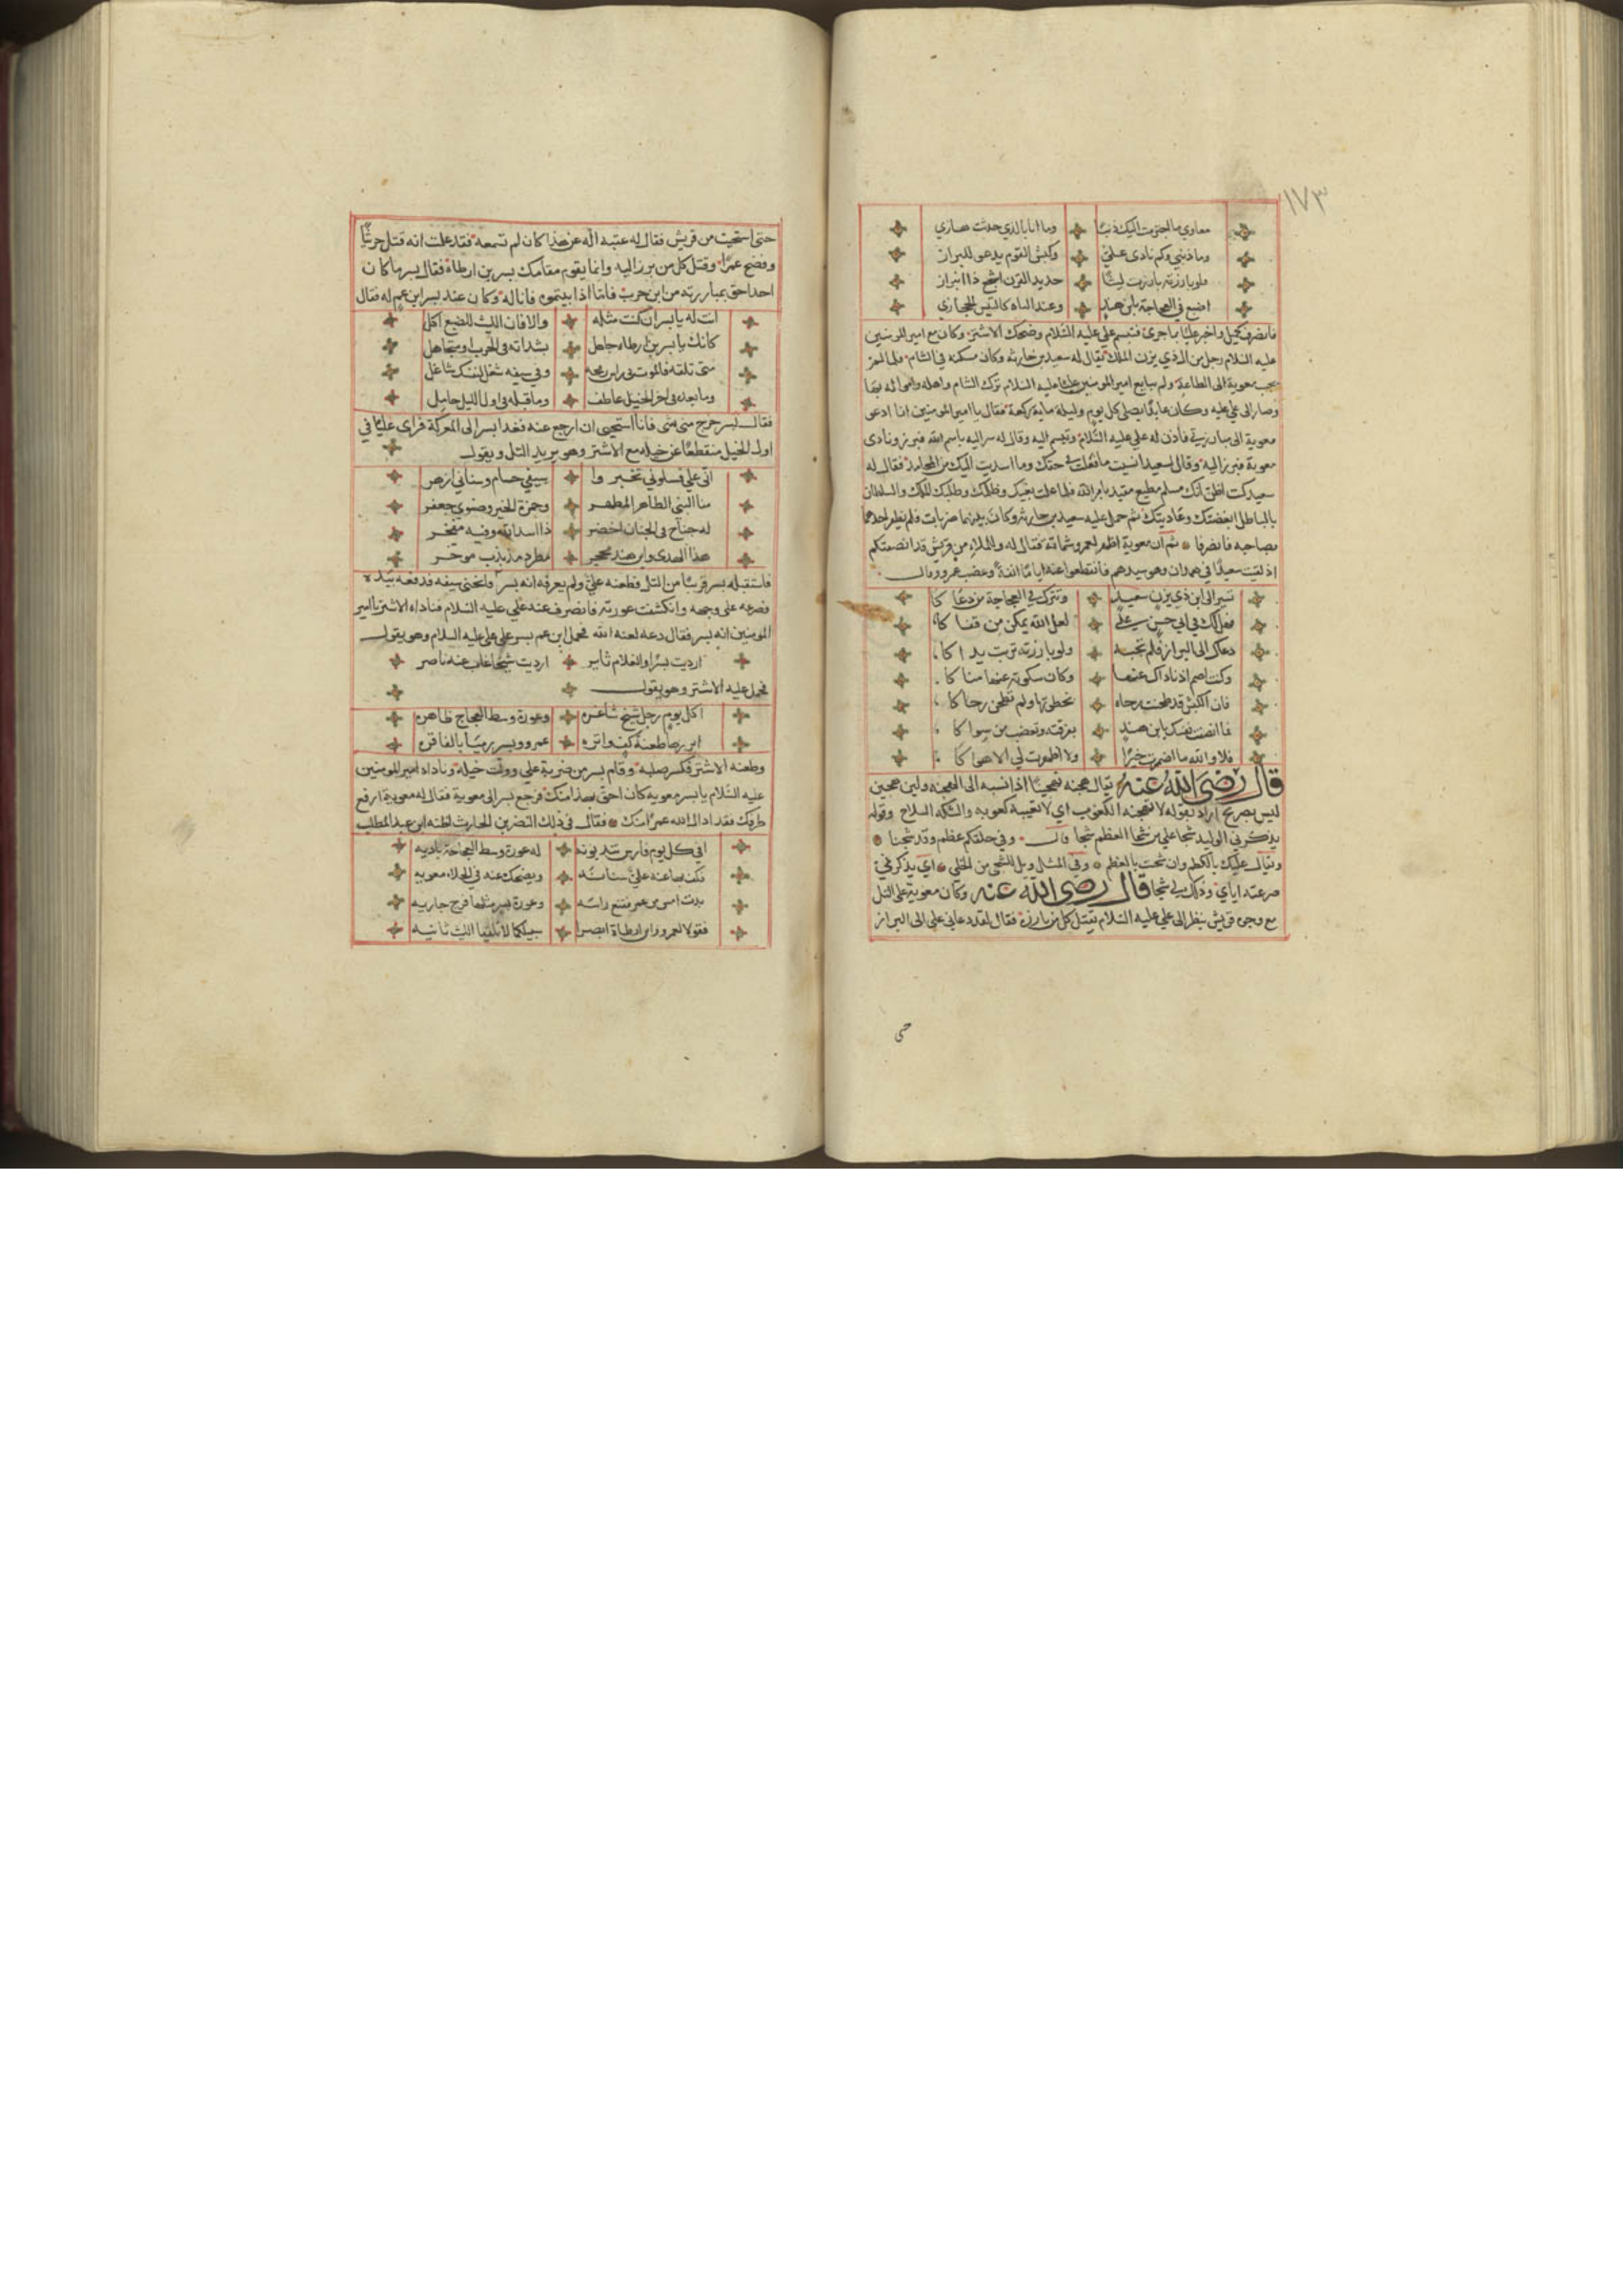 ١٧٣
معاوي ما اجترمت اليك ذنبا وما انا بالذي حدثت هازي
وما ذنبي وكم نادى علي وكبش القوم يدعى للبراز
فلو بارزته بارزت ليثا حديد القرن اشجع ذا ابتزاز
اضبع في العجاجة يابن هند وعند الباه كالتيس الحجازي
فانصرف واخبر عليا بما جرى فتبسم علي عليه السلام وضحك الاشتر وكان مع امير المومنين
عليه السلام رجل من ال ذي يزن الملك يقال له سعيد بن حارثه وكان مسكنه في الشام فلما لم
يجب معوية الى الطاعة ولم يبايع امير المومنين عليا عليه السلام ترك الشام واهله وامواله بها
وصار الى علي عليه وكان عابدا يصلي كل يوم وليلة ماية ركعة فقال يا امير المومنين انا ادعى
معوية الى مبارزتي فأذن له علي عليه السلام وتبسم اليه وقال له سر اليه باسم الله فبرز ونادى
معوية فبرز اليه وقال لسعيد انسيت ما فعلت في حقك وما اسديت اليك من المحامد فقال له
سعيد كنت اظن انك مسلم مطيع متقيد بامر الله فلما علمت بغيك وظلمك وطلبك للملك والسلطان
بالباطل ابغضتك وعاديتك ثم حمل عليه سعيد بن حارثه وكان بينهما ضربات فلم يظفر احدهما
بصاحبه فانصرفا ثم ان معوية اظهر لعمرو شماتة فقال له والملاء من قريش قد انصفتكم
اذ لقيت سعيدا في همدان وهو سيدهم فانقطعوا عنه اياما انفة وغضب عمرو وقال
تسير الى ابن ذي يزن سعيد وتترك في العجاجة من دعا كا
فهل لك في ابي حسن علي لعل الله يمكن من قفا كا
دعاك الى البراز فلم تجبه ولو بارزته تربت يدا كا
وكنت اصم اذ ناداك عنها وكان سكوته عنها منا كا
فان الكبش قد طحنت رحاه بخطوتها ولم تطحن رحا كا
فما انصفت نفسك يابن هند بفرقته وتغضب من سوا كا
فلا والله ما اضمرت خيرا ولا اظهرت لي الا هوا كا
قال رضى الله عنه يقال هجنه تهجينا اذا نسبه الى الهجنة ولين هجين
ليس بصريح اراد بقوله لا تهجنه الكعوب اي لا تعيبه كعوبه والشكه السلاح وقوله
يذكرني الوليد شجا علي من شجا العظم شجا قال وفي حلقكم عظم وقد شجنا
ويقال عليك بالكظم وان شجت بالعظم وفي المثل ويل للشجي من الخلي اي يذكرني
صرعته اياي وذلك لي شجا قال رضى الله عنه وكان معوية على التل
مع وجوه قريش ينظر الى علي عليه السلام يقتل كل من بارزه فقال لقد دعاني علي الى البراز
حتى
حتى استحيت من قريش فقال له عتبه اله عن هذا كان لم تسمعه فقد علمت انه قتل حريثا
وفضح عمرا وقتل كل من برز اليه وانما يقوم مقامك بسر بن ارطاة فقال بسر ما كان
احد احق بمبارزته من ابن حرب فاما اذا ابيتموه فانا له وكان عند بسر ابن عم له فقال
انت له يا بسر ان كنت مثله والا فان الليث للضبع اكل
كانك يا بسر بن ارطاة جاهل بشداته في الحرب او متجاهل
متى تلقه فالموت في راس رمحه وفي سيفه شغل لنفسك شاغل
وما بعده في اخر الخيل عاطف وما قبله في اول الليل حامل
فقال بسر خرج مني شي فانا استحيي ان ارجع عنه فغدا بسر الى المعركة فراى عليا في
اول الخيل منقطعا عن خيله مع الاشتر وهو يريد التل ويقول
اني علي فسلوني تخبروا سيفي حسام وسناني ازهر
منا النبي الطاهر المطهر وحمزة الخير وصنوي جعفر
له جناح في الجنان اخضر ذا اسد الله وفيه مفخر
هذا الهدى وابن هند محجر مطرد مذبذب موخر
فاستقبله بسر قريبا من التل فطعنه علي ولم يعرفه انه بسر وانحنى سيفه فدفعه بيده
فصرعه على وجهه وانكشفت عورته فانصرف عنه علي عليه السلام فناداه الاشتر يا امير
المومنين انه بسر فقال دعه لعنه الله فحمل ابن عم بسر على علي عليه السلام وهو يقول
ارديت بسرا والغلام ثاير ارديت شيخا غاب عنه ناصر
فحمل عليه الاشتر وهو يقول
اكل يوم رجل شيخ شاغره وعورة وسط العجاج ظاهره
ابرزها طعنة كف واتره عمرو وبسر رميا بالفاقره
وطعنه الاشتر فكسر صلبه وقام بسر من ضربة علي وولت خيله وناداه امير المومنين
عليه السلام يا بسر معويه كان احق بهذا منك فرجع بسر الى معوية فقال له معوية ارفع
طرفك فقد ادال الله عمرا منك فقال في ذلك النضر بن الحارث لطنه ابن عبد المطلب
افي كل يوم فارس تندبونه له عورة وسط العجاجة باديه
يكف بها عنه علي سنانه ويضحك عنه في الخلاء معويه
بدت امس من عمرو فقنع راسه وعورة بسر مثلها فرج جاريه
فقولا لعمرو وابن ارطاة ابصرا سبيلكما لا تلقيا الليث ثانيه